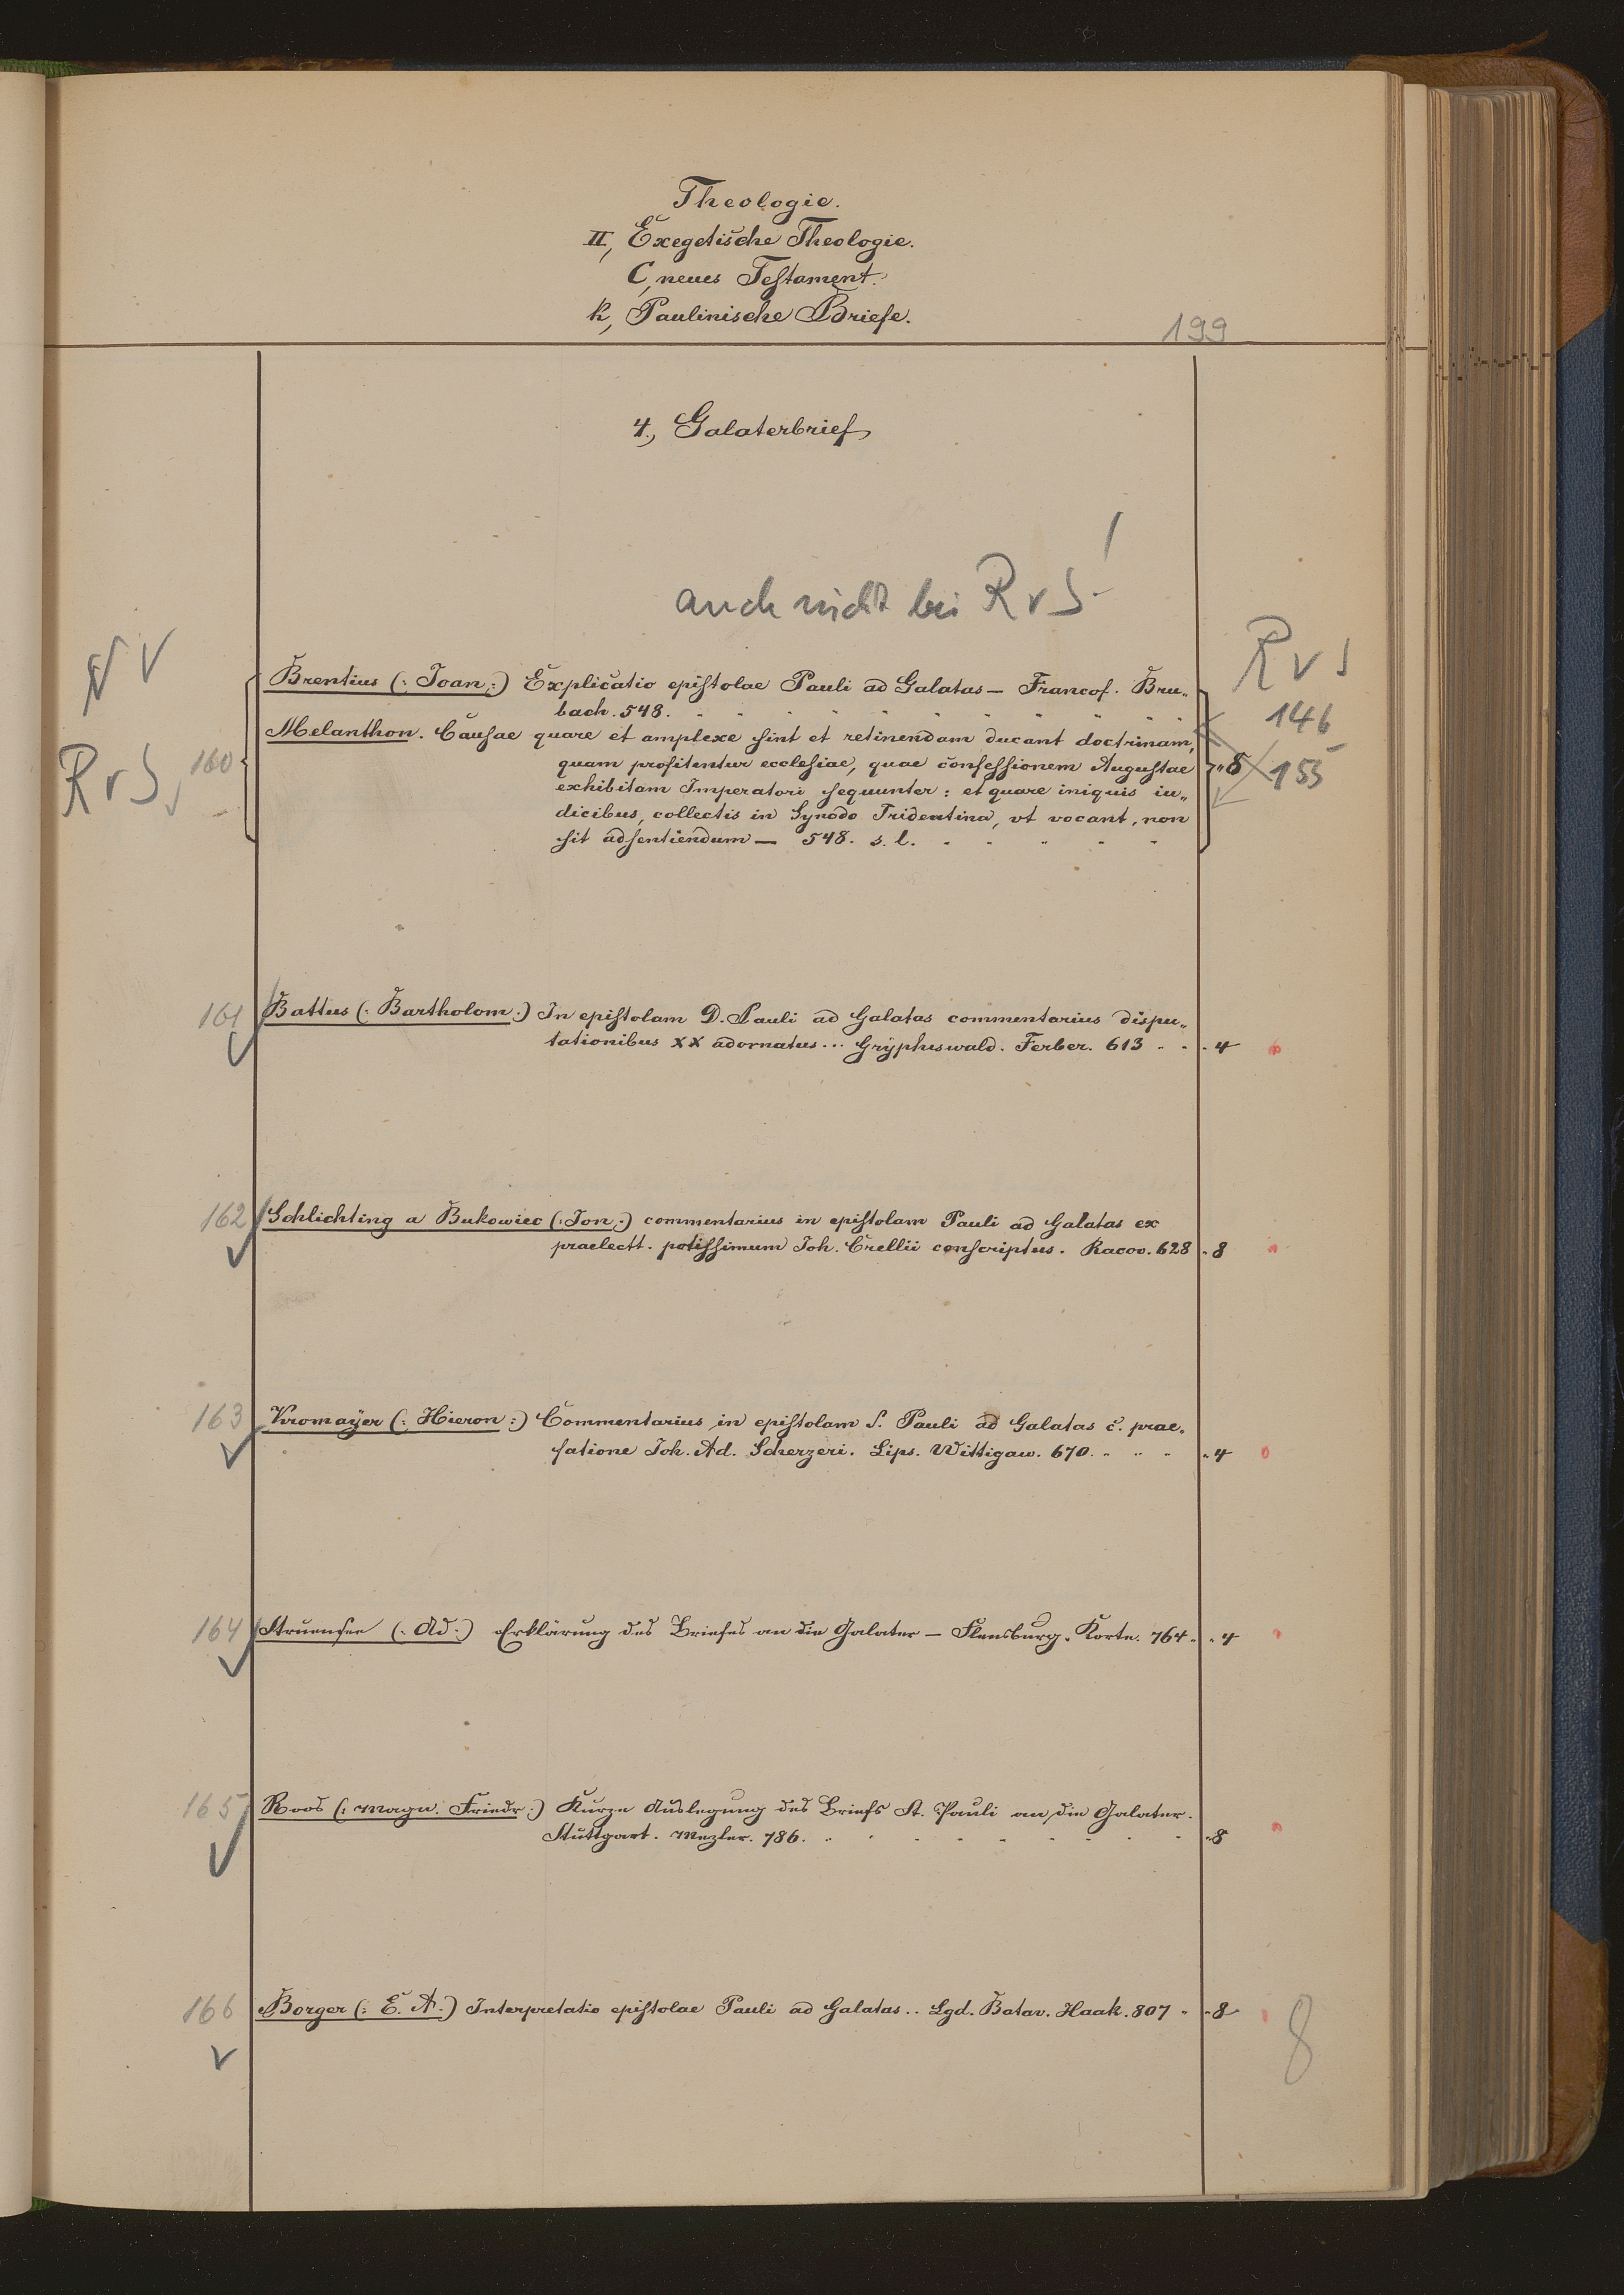 Theologie.
II, Exegetische Theologie.
C, neues Testament.
k, Paulinische Briefe.
199
4., Galaterbrief
auch nicht bei R v S!
R v S
146
155
R v S
160
Brentius (: Joan :) Explicatio epistolae Pauli ad Galatas — Francof. Bru„
bach. 548.
Melanthon. Causae quare et amplexe sint et retinendam ducant doctrinam,
quam profitentur ecclesiae, quae confessionem Augustae „ 8
exhibitam Imperatori sequunter: et quare iniquis iu„
dicibus, collectis in Synodo Tridentina, vt vocant, non
sit adsentiendum — 548. s. l.
161 Battus (: Bartholom :) In epistolam D. Pauli ad Galatas commentarius dispu„
tationibus XX adornatus... Gryphiswald. Ferber. 613 „ 4
162 Schlichting a Bukowiec (: Jon :) commentarius in epistolam Pauli ad Galatas ex
praelectt. potissimum Joh. Crellii conscriptus. Racov. 628 „ 8
163 Kromaÿer (: Hieron :) Commentarius in epistolam S. Pauli ad Galatas c. prae„
fatione Joh. Ad. Scherzeri. Lips. Wittigaw. 670. „ 4
164 Struensee (: Ad :) Erklärung des Briefes an die Galater — Flensburg. Korte. 764. „ 4
165 Roos (: Magn. Friedr :) Kurze Auslegung des Briefs St. Pauli an die Galater.
Stuttgart. Mezler. 786. „ 8
166 Borger (: E. A :) Interpretatio epistolae Pauli ad Galatas.. Lgd. Batav. Haak. 807 „ 8
8